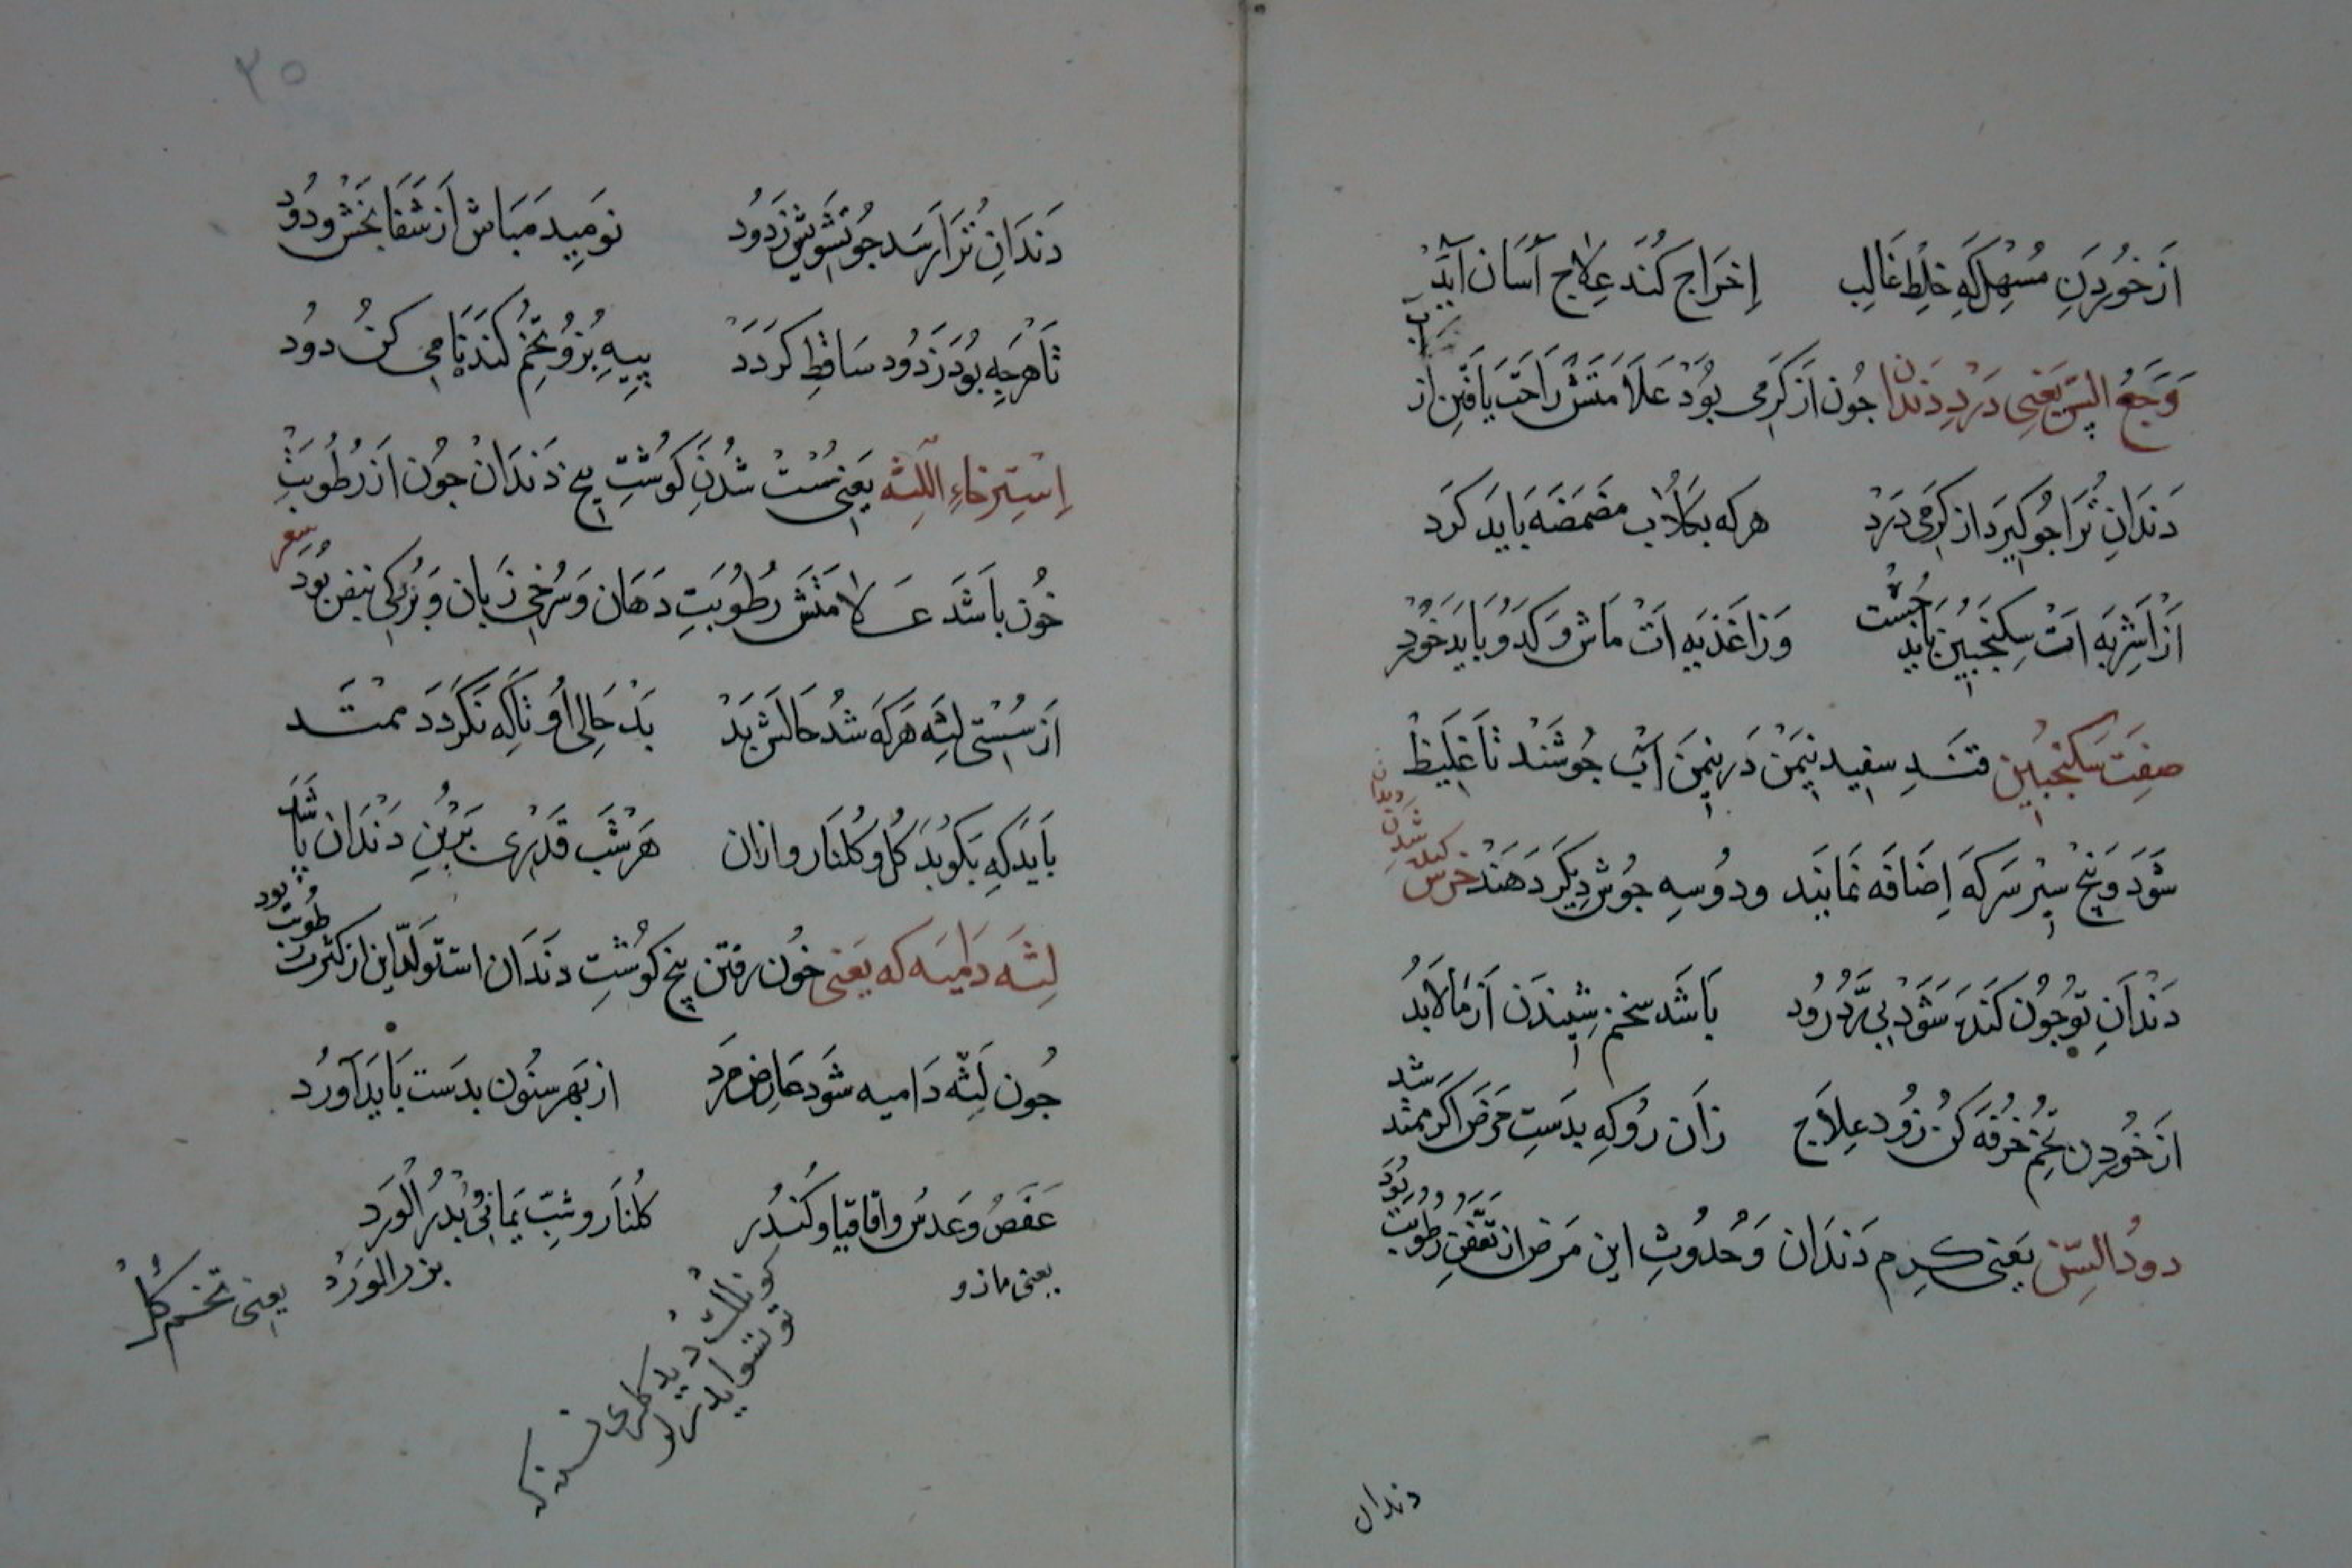 اَز خُوردَنِ مُسْهِل كَهِ خِلْطِ غَالِب اِخرَاج كُنَد عِلاج آسَان آيَدْ
وَجَعُ السِّن يَعنِى دَردِ دَندان جُون اَز كَرمِى بُوَدْ عَلَامَتَشْ رَاحَت يَافتَنِ از
آب سرد
دَندَانِ تُرَا جُو كيرَد از كَرمِى دَردْ هركه بكلاب مضمضَه بَايَد كَرد
اَز اَشرِبَه اَتْ سِكَنجَبينْ بَايَد جُست وَز اَغذِيَه اَتْ مَاش وَ كَدُو بَايَد خوردْ
صِفَت سَكنجبين قَنَدِ سِفيد نِيمَنْ دَر نِيمَن آبْ جُوشَنْد تَا غَلِيظْ
شَوَد وَ پَنج سِير سَركَه اِضَافَه نَمايَند ودُو سِه جُوشِ دِيكَر دَهَنْد ضرس
كند شدن دندان
دَندَانِ تو جُون كُنَد شَوَدْ بى بَرد رُود بَاشَد سخنم شِنيدَن اَز مَا لابُدْ
اَز خُوردن تُخم خُرفَه كُن زُود عِلَاج زان رُو كِه بدَستِ مَرَض اكَر ممتد شد
دودُ السِّن يَعنى كرِم دَندَان وَحُدُوثِ اين مَرض از تعَفّن رطوبت بُوَد
دندان
٣٥
دَندَانِ تُرَا رَسَد جُو تَشوِيش زدُود نَومِيد مَبَاش اَز شَفَا بَخش ودُود
تَا هَرچِه بُوَد زَدُود سَاقِط كَردَدْ پِيهِ بُز و تُخمِ كَنَدَنَا مى كن دُود
اِستِرخاءِ اللّثَه يَعنى سُستْ شُدَنِ كَوشتِ بيخ دَندَان جُون اَز رُطُوبَتِ
سعر
خُون بَاشَد عَلَامَتَش رطُوبَتِ دَهَان وَسُرخى زَبان وَ بُزُركى نبض بُوَد
اَز سُستى لِثَه هَركَه شُد حَالَش بَدْ بَدْ حَالى اُو تَا كه نَكَردَد ممتَد
بَايَد كِه بكوبَد كُل و كُلنَار و ازان هَر شَب قَدرِى بَر بُن دَندَان پاشَد
لِثَه دَامِيَه كه يَعنى خُون رفتَن بيخ كوشتِ دندَان است تَولّد اين از كَثرت رطوبت بود
جُون لَثَه دَاميه شَود عَارض مَرد از بَهر سنُون بدَست بَايَد آورد
عَفَصُ وَعَدس واَقاقيا وكُندُر كُلنَار وشَبّ يَمانى بُذرُ الوَرَد
يعنى مازو
بزر الورَدْ
يعنى تخم كُلْ